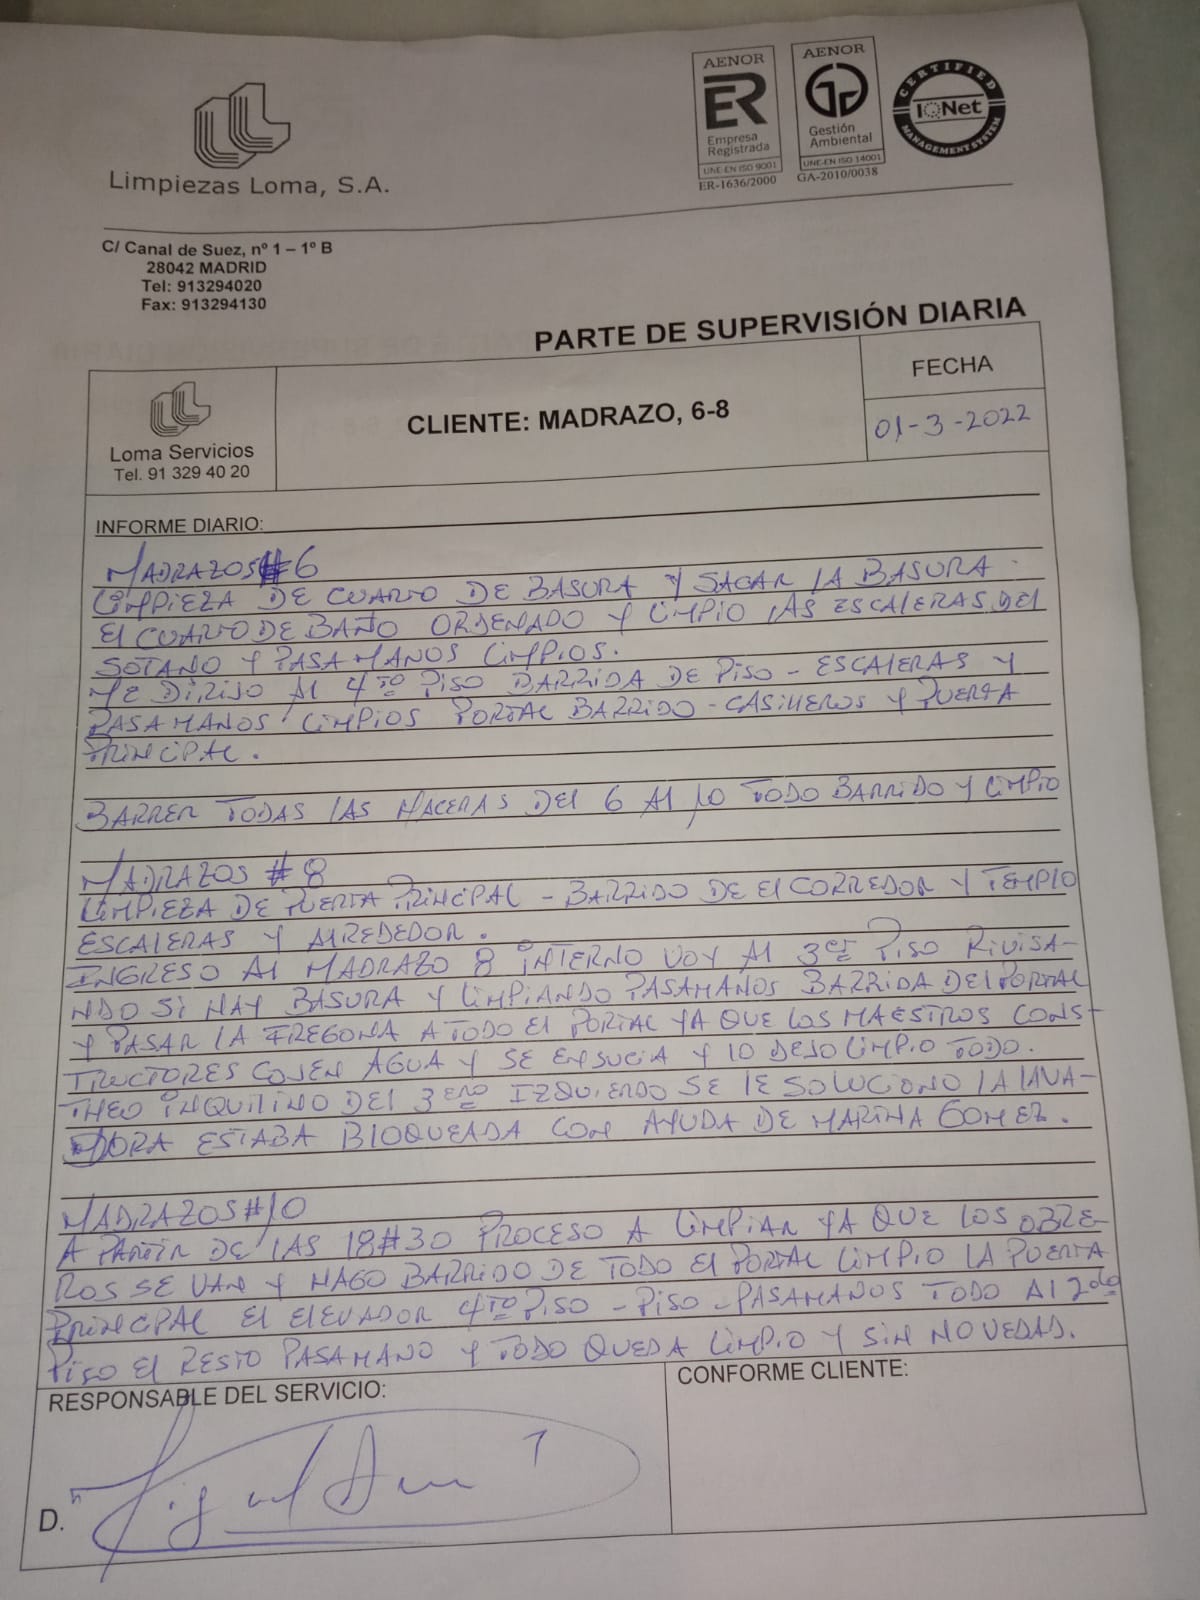 Limpiezas Loma, S.A.
AENOR
ER
Empresa
Registrada
UNE-EN ISO 9001
ER-1636/2000
AENOR
Gestión
Ambiental
UNE-EN ISO 14001
GA-2010/0038
CERTIFIED
IQNet
MANAGEMENT SYSTEM
C/ Canal de Suez, nº 1 – 1º B
28042 MADRID
Tel: 913294020
Fax: 913294130
PARTE DE SUPERVISIÓN DIARIA
Loma Servicios
Tel. 91 329 40 20
CLIENTE: MADRAZO, 6-8
FECHA
01-3-2022
INFORME DIARIO:
MADRAZOS #6
LIMPIEZA DE CUARTO DE BASURA Y SACAR LA BASURA.
El CUARTO DE BAÑO ORDENADO Y LIMPIO LAS ESCALERAS DEL
SOTANO Y PASAMANOS LIMPIOS.
ME DIRIJO AL 4TO PISO BARRIDA DE PISO - ESCALERAS Y
PASAMANOS LIMPIOS PORTAL BARRIDO - CASILLEROS Y PUERTA
PRINCIPAL.
BARRER TODAS LAS HACERAS DEL 6 AL 10 TODO BARRIDO Y LIMPIO
MADRAZOS #8
LIMPIEZA DE PUERTA PRINCIPAL - BARRIDO DE EL CORREDOR Y TEMPLO
ESCALERAS Y ALREDEDOR.
INGRESO AL MADRAZO 8 INTERNO VOY AL 3ER PISO RIVISA-
NDO SI HAY BASURA Y LIMPIANDO PASAMANOS BARRIDA DEL PORTAL
Y PASAR LA FREGONA A TODO EL PORTAL YA QUE LOS MAESTROS CONS-
TRUCTORES COJEN AGUA Y SE ENSUCIA Y LO DEJO LIMPIO TODO.
INQUILINO DEL 3ERO IZQUIERDO SE LE SOLUCIONO LA LAVA-
DORA ESTABA BLOQUEADA CON AYUDA DE MARINA GOMEZ.
MADRAZOS #10
A PARTIR DE LAS 18#30 PROCESO A LIMPIAR YA QUE LOS OBRE-
ROS SE VAN Y HAGO BARRIDO DE TODO EL PORTAL LIMPIO LA PUERTA
PRINCIPAL EL ELEVADOR 4TO PISO - PISO - PASAMANOS TODO AL 2do
PISO EL RESTO PASAMANO Y TODO QUEDA LIMPIO Y SIN NOVEDAD.
RESPONSABLE DEL SERVICIO:
CONFORME CLIENTE:
D.